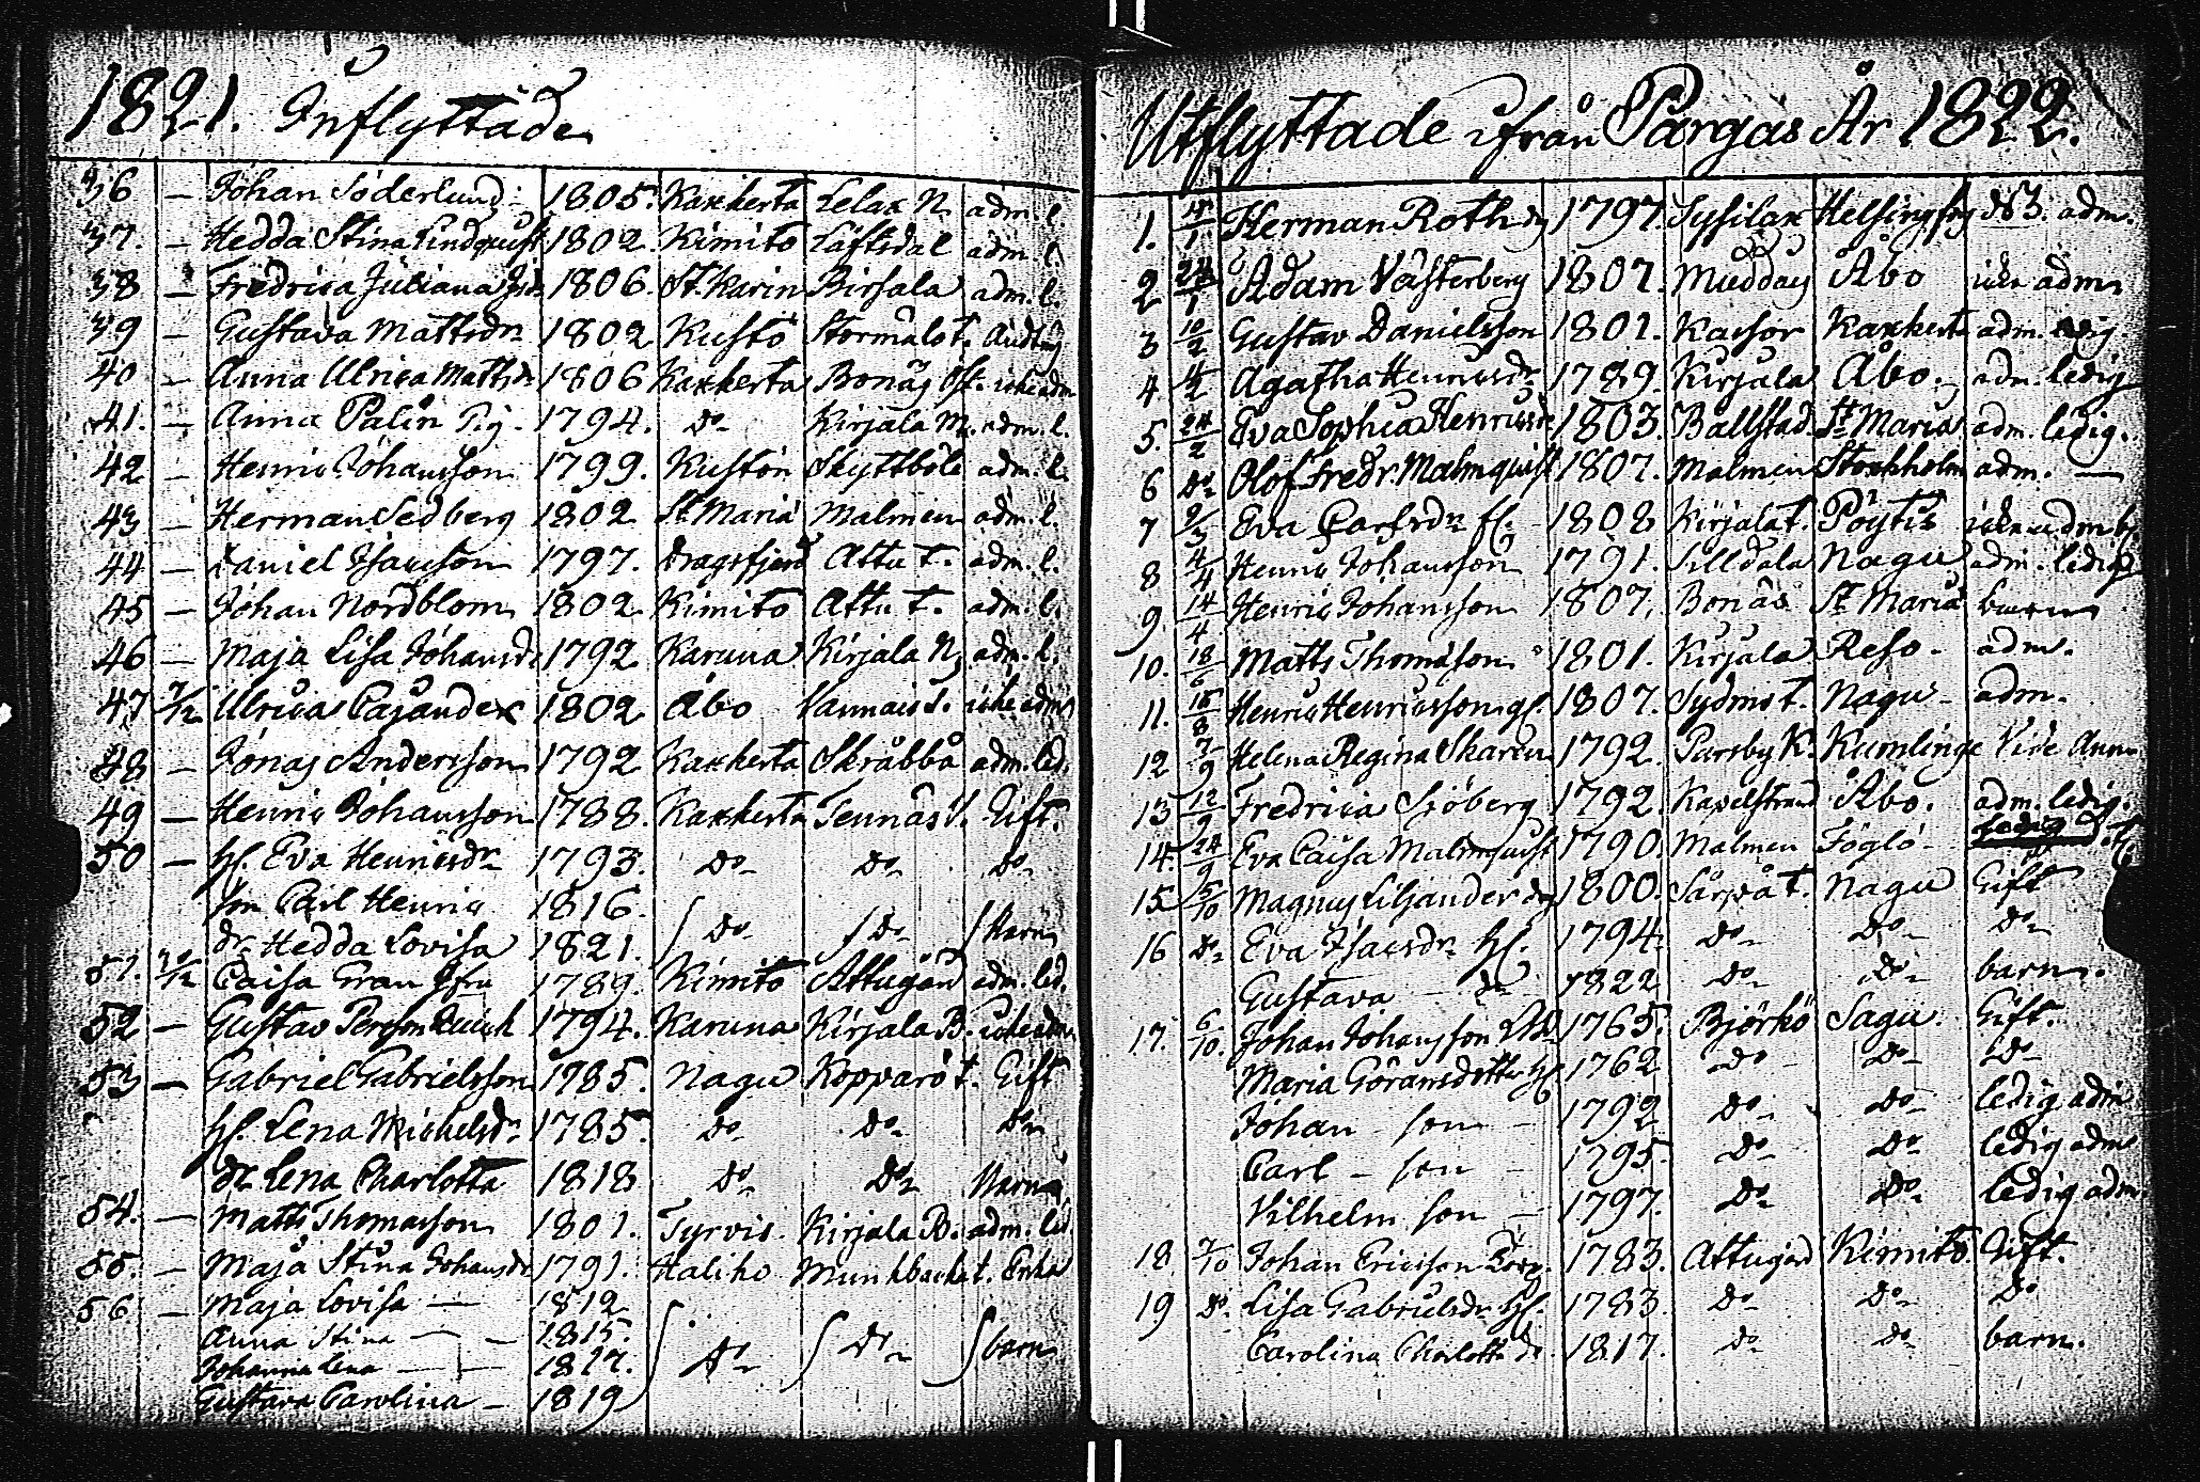 1821. Inflyttade
36 — Johan Söderlund 1805. Kaxkerta Lelax N. adm. l.
37. — Hedda Stina Lindquist 1802. Kimito Löftsdal adm. l.
38 — Fredrica Juliana 1806. St. Karin Birsala adm. l.
39 — Gustava Mattsdr 1802 Kustö Stormälö t.
40 — Anna Ulrica Mattsdr 1806 Kaxkerta Bonäs icke adm
41. — Anna Palin Pig. 1794. do Kirjala M. adm. l.
42 — Henric Johansson 1799. Kustön Skyttböle adm. l.
43 — Herman Sedberg 1802 St Maria Malmen adm. l.
44 — Daniel Isacsson 1797. Dragsfjerd Attu t. adm. l.
45 — Johan Nordblom 1802 Kimito Attu t. adm. l.
46 — Maja Lisa Johansdr 1792 Karuna Kirjala N. adm. l.
47 7/12 Ulrica Cajander 1802 Åbo Vannais icke adm
48 — Jonas Andersson 1792 Kaxkerta Skråbbå adm. led.
49 — Henric Johansson 1788. Kaxkerta Tennäs Gift.
50 — H. Eva Henricsdr 1793. do do do
son Carl Henric 1816.
dr Hedda Lovisa 1821. do do Barn
51. Caisa Gran Jfru 1789. Kimito Attugård adm. led.
52 — Gustav Person 1794. Karuna Kirjala B. icke adm
53 — Gabriel Gabrielsson 1785. Nagu Kopparö t. Gift
H. Lena Michelsdr 1785. do do do
dr Lena Charlotta 1818 do do Barn
54. — Matts Thomasson 1801. Tyrvis. Kirjala B. adm. led
55. — Maja Stina Johansdr 1791. Haliko Munkbacka t. Enka
56 — Maja Lovisa — 1812
Anna Stina — 1815.
Johanna Lena — 1817. do do barn
Gustava Carolina — 1819
Utflyttade ifrån Pargas År 1822.
1. Herman Roth 1797. Sysilax Helsingfors adm.
2 24/1 Adam Västerberg 1807. Muddais Åbo icke adm
3 10/2 Gustav Danielsson 1801. Kassor Kaxkerta adm. ledig.
4 Agatha Henricsdr 1789. Kirjala Åbo. adm. ledig
5. 24/2 Eva Sophia Henricsdr 1803. Bällstad. St Maria adm. ledig.
6 do Olof Fredr. Malmquist 1807. Malmen Stockholm adm. —
7 9/3 Eva Carlsdr fl. 1808 Kirjala t. Pöytis icke adm
8 4/4 Henric Johansson 1791. Silldala Nagu adm. ledig
9. 14/4 Henric Johansson 1807. Bonäs St Maria barn
10. 18/6 Matts Thomasson 1801. Kirjala Reso - adm.
11. 16/8 Henric Henricsson 1807. Sydmo t. Nagu - adm.
12 7/9 Helena Regina Skarin 1792. Parsby K. Kumlinge Vide Ann
13 12/9 Fredrica Sjöberg 1792. Kapelstrand Åbo. adm. ledig.
14. 24/9 Eva Caisa Malmquist 1790. Malmen Föglö -
15 5/10 Magnus Liljander 1800. Särpå t. Nagu Gift
16 do Eva Isacsdr H. 1794. do do do
Gustava — dr 1822 do do barn.
17. 6/10. Johan Johansson 1765. Björkö Sagu. Gift.
Maria Göransdotter H. 1762 do do do
Johan — son — 1792 do do ledig adm
Carl — son — 1795. do do ledig adm
Vilhelm son — 1797. do do ledig adm
18 7/10 Johan Ericsson Torp. 1783. Attugård Kimito. Gift.
19 do Lisa Gabrielsdr H. 1783. do do do
Carolina Charlotta dr 1817. do do barn.